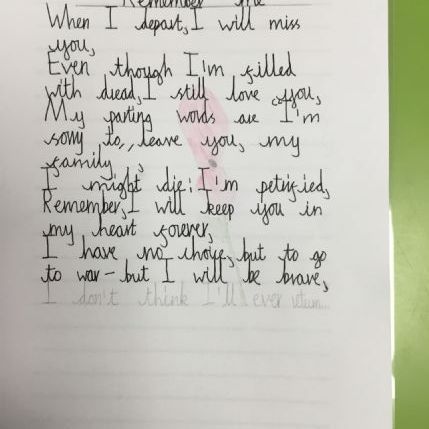 Remember me
When I depart, I will miss
you,
Even though I'm filled
with dread, I still love you,
My parting words are I'm
sorry to,, leave you, my
family,
I might die; I'm petrified,
Remember, I will keep you in
my heart forever,
I have no choice, but to go
to war - but I will be brave,
I don't think I'll ever return...